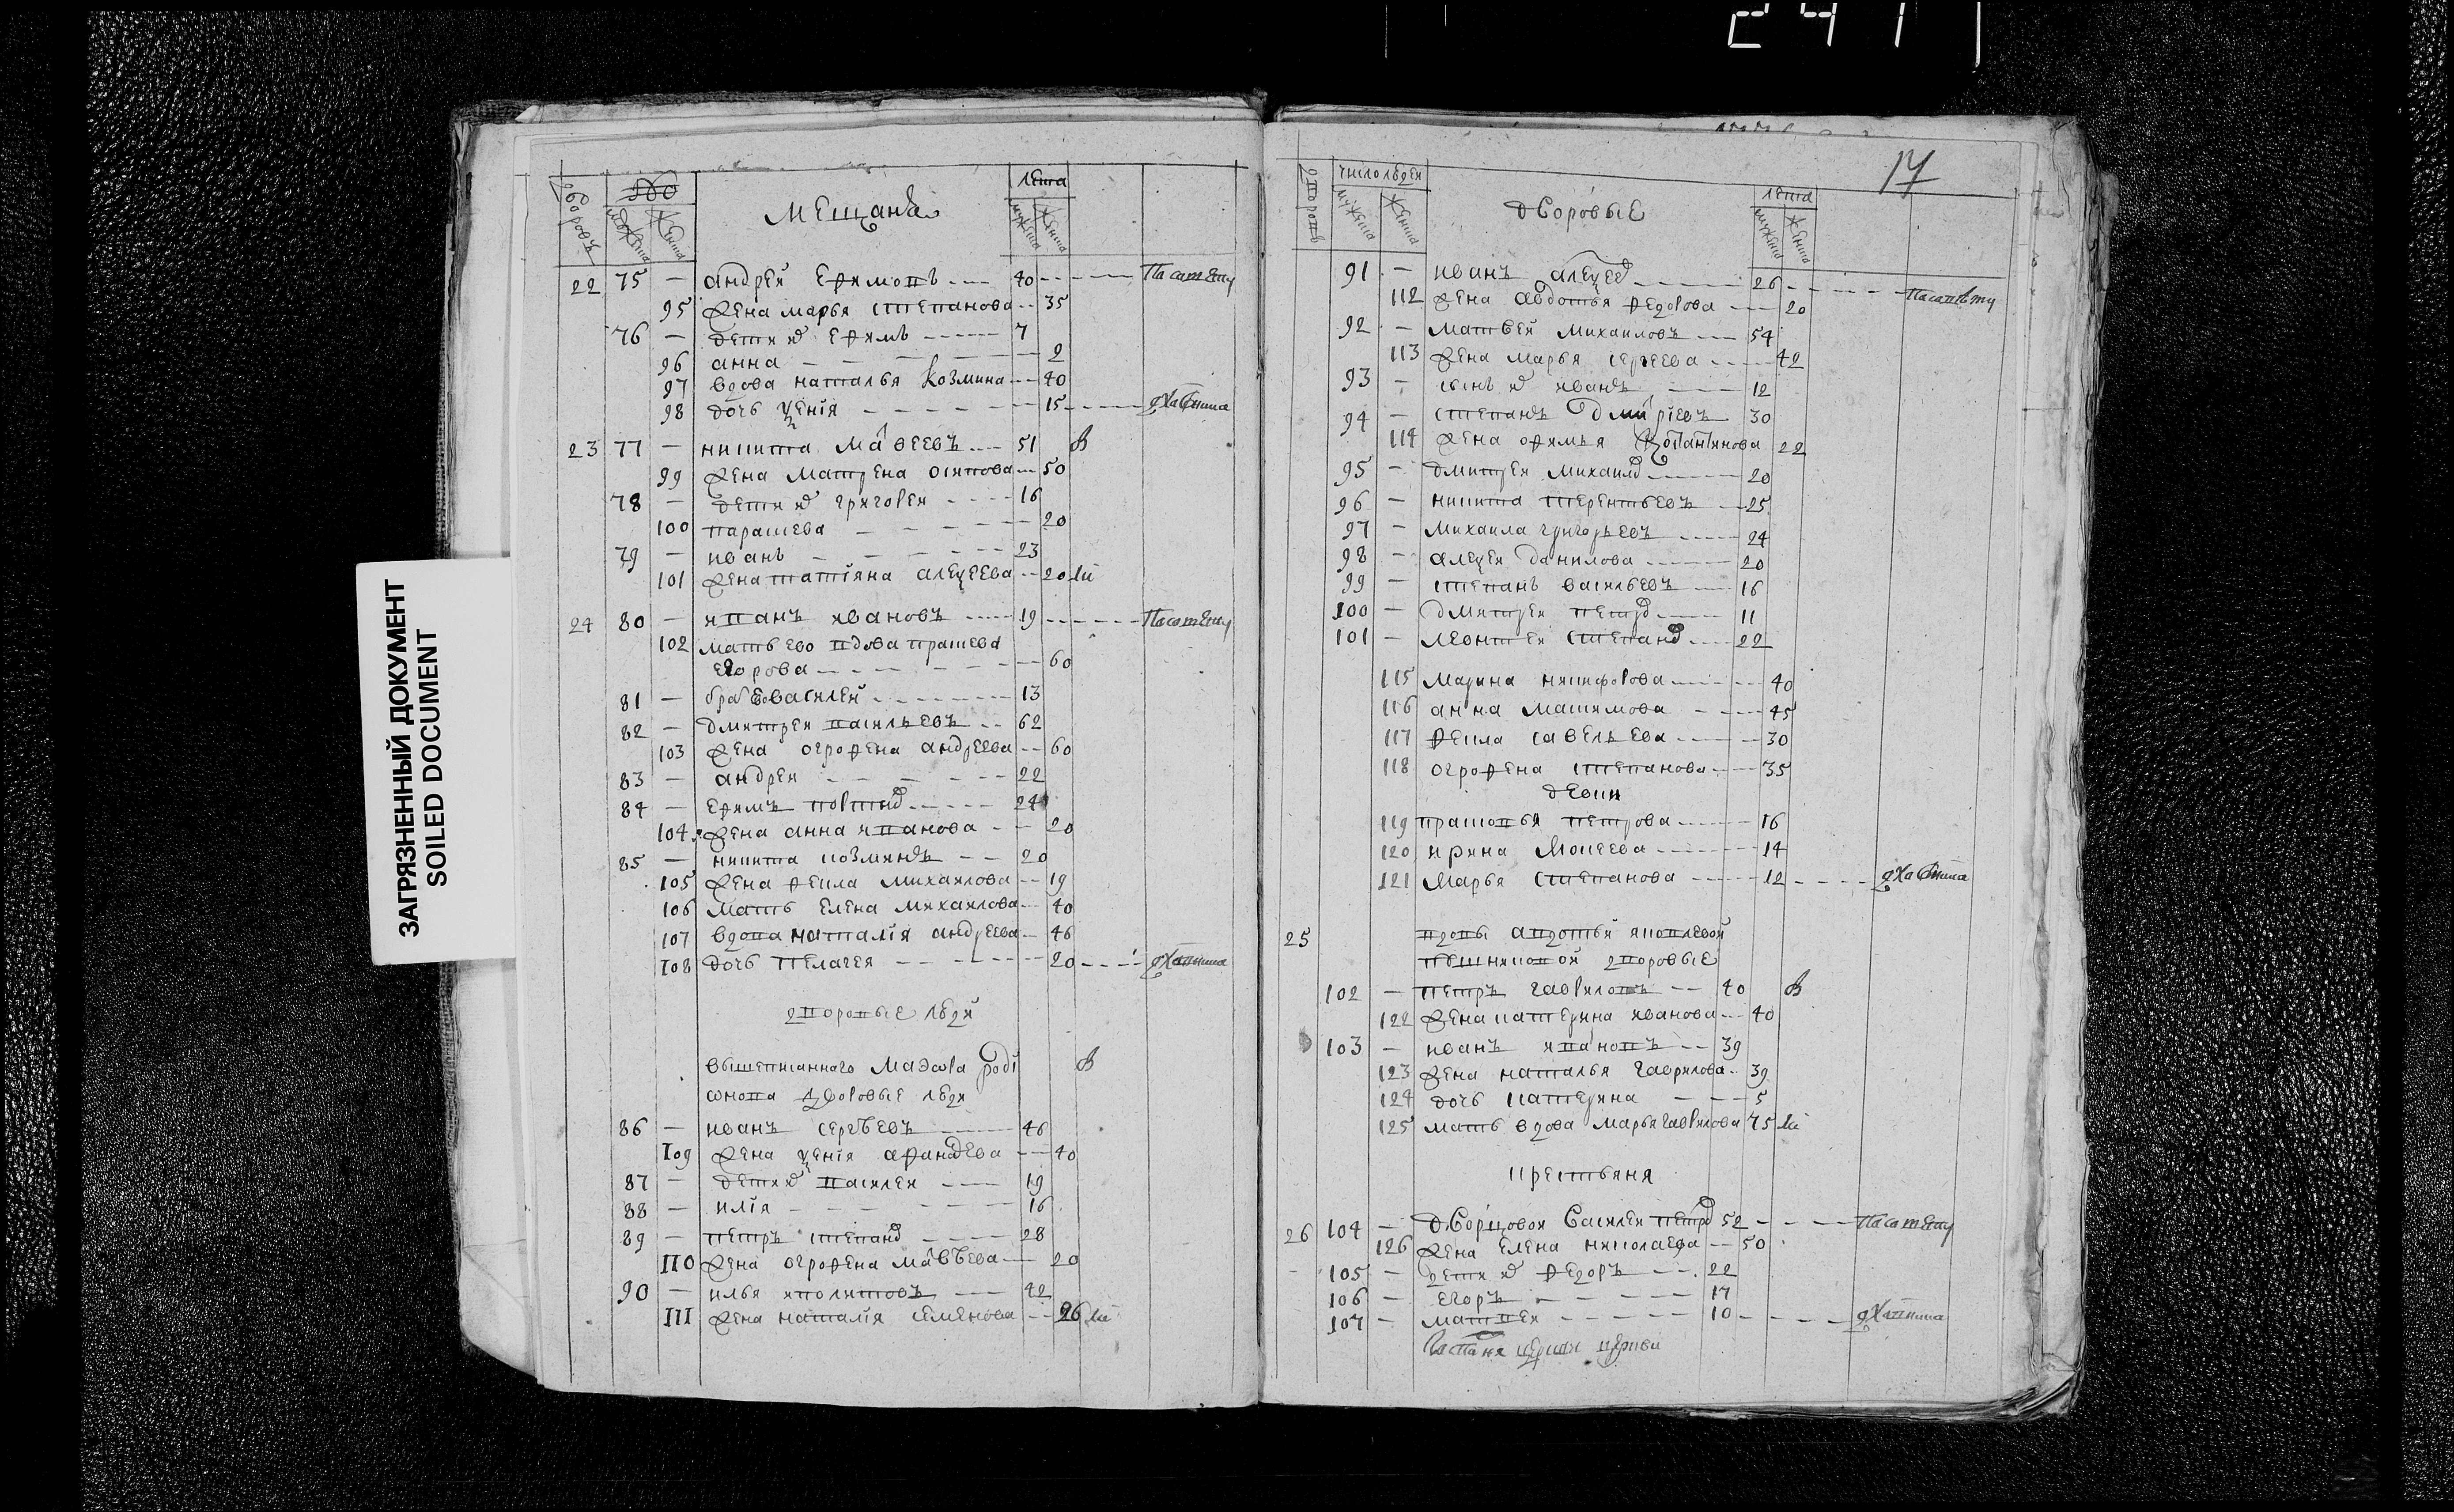 2471
ЗАГРЯЗНЕННЫЙ ДОКУМЕНТ
SOILED DOCUMENT
дворовъ
мужеска
женска
мещаня
лета
мужеска
женска
22 75 — андрей ефимовъ 40 Па сотему
95 жена марья степанова 35
76 — дети их ефимъ 7
96 анна 2
97 вдова наталья козмина 40
98 дочь ксенiя 15
23 77 — никита матвеевъ 51 В
99 жена матрена осипова 50
78 — дети их григореи 16
100 параскева 20
79 — иванъ 23
101 жена татiяна алексеева 20
24 80 — иванъ ивановъ 19
102 мать ево вдова праскева
егорова 60
81 — братъ ево василей 13
82 — дмитреи васильевъ 62
103 жена огрофена андреева 60
83 — андреи 22
84 — ефимъ 24
104 жена анна иванова 20
85 — никита козминъ 20
105 жена фекла михаилова 19
106 мать елена михаилова 40
107 вдова наталiя андреева 46
108 дочь пелагея 20
дворовые люди
вышеписанного маэора родi
онова дворовые люди
86 — иванъ сергѣевъ 46
109 жена ксенiя афанасева 40
87 — дети их василеи 19
88 — илiя 16
89 — петръ степанов 28
110 жена огрофена матвѣева 20
90 — илья иполитовъ 42
111 жена наталiя семенова 26
17
дворовъ
число людеи
мужеска
женска
дворовые
лета
мужеска
женска
91 — иванъ алексеев 26
112 жена авдотья федорова 20
92 — матвеи михаиловъ 54
113 жена марья сергеева 42
93 — сынъ их иванъ 12
94 — степанъ дмитрiевъ 30
114 жена офимья костантинова 22
95 — дмитреи михаилов 20
96 — никита терентьевъ 25
97 — михаила григорьевъ 24
98 — алексеи данилова 20
99 — степанъ васильевъ 16
100 — дмитреи петров 11
101 — леонтеи степанов 22
115 марина никифорова 40
116 анна максимова 45
117 фекла савельева 30
118 огрофена степанова 35
девки
119 прасковья петрова 16
120 ирина моисеева 14
121 марья степанова 12
25 вдовы авдотьи яковлевои
дворовые
102 — петръ гавриловъ 40 В
122 жена катерина иванова 40
103 — иванъ ивановъ 39
123 жена наталья гаврилова 39
124 дочь катерина 5
125 мать вдова марья гаврилова 75
крестьяня
26 104 — дворцовои василеи петров 52
126 жена елена николаева 50
105 — дети их федоръ 22
106 — егоръ 17
107 — матвеи 10